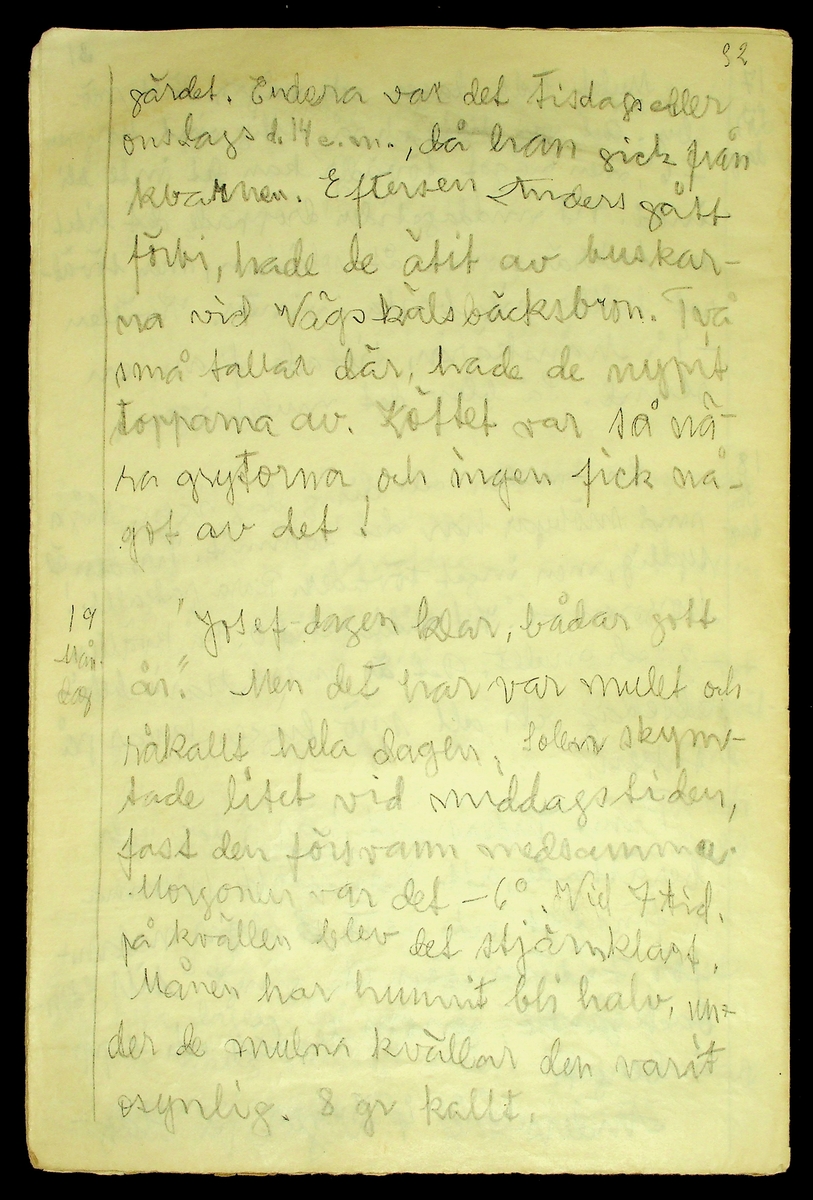 92
gärdet. Endera var det Tisdags eller
onsdags d. 14 e.m., då han gick från
kvarnen. Eftersen Anders gått
förbi, hade de ätit av buskar-
na vid Vägskälsbäcksbron. Två
små tallar där, hade de nypit
topparna av. Köttet var så nä-
ra grytorna och ingen fick nå-
got av det!
19
Mån
dag
"Josef-dagen klar, bådar gott
år." Men det har var mulet och
råkallt hela dagen, Solen skym-
tade litet vid middagstiden,
fast den försvann medsamma.
Morgonen var det -6°. Vid 7 tid.
på kvällen blev det stjärnklart.
Månen har hunnit bli halv, un-
der de mulna kvällar den varit
osynlig. 8 gr kallt.